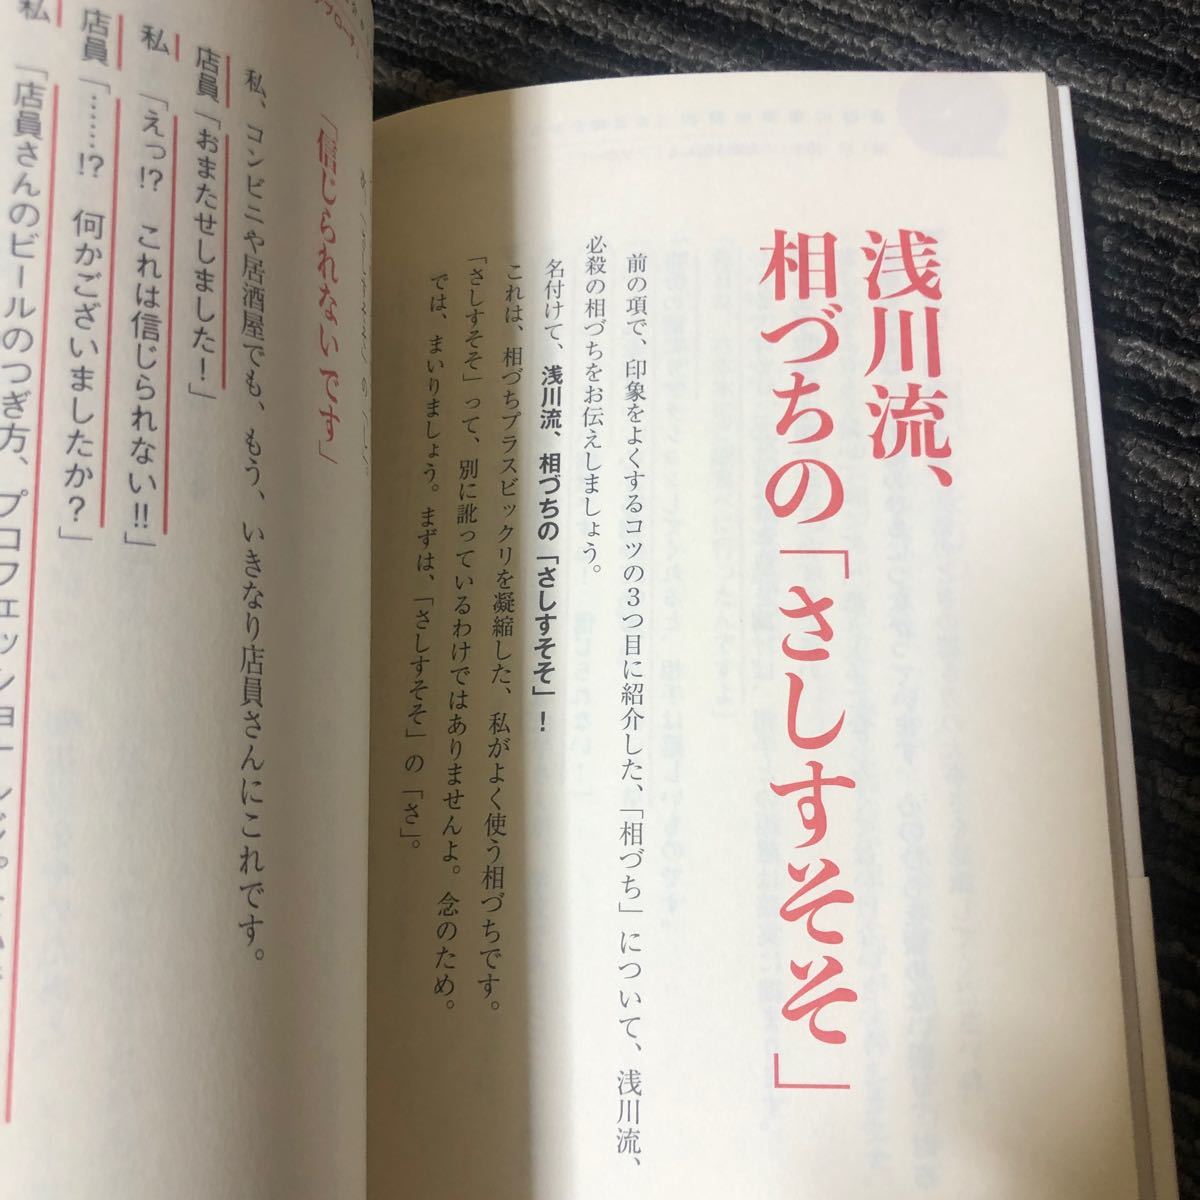 浅川流、
相づちの「さしすそそ」
前の項で、印象をよくするコツの3つ目に紹介した、「相づち」について、浅川流、
必殺の相づちをお伝えしましょう。
名付けて、浅川流、相づちの「さしすそそ」!
これは、相づちプラスビックリを凝縮した、私がよく使う相づちです。
「さしすそそ」って、別に訛っているわけではありませんよ。念のため。
では、まいりましょう。まずは、「さしすそそ」の「さ」。
「信じられないです」
私、コンビニや居酒屋でも、もう、いきなり店員さんにこれです。
店員「おまたせしました!」
私「えっ!? これは信じられない!!」
店員「……!? 何かございましたか?」
私「店員さんのビールのつぎ方、プロフェッショナル